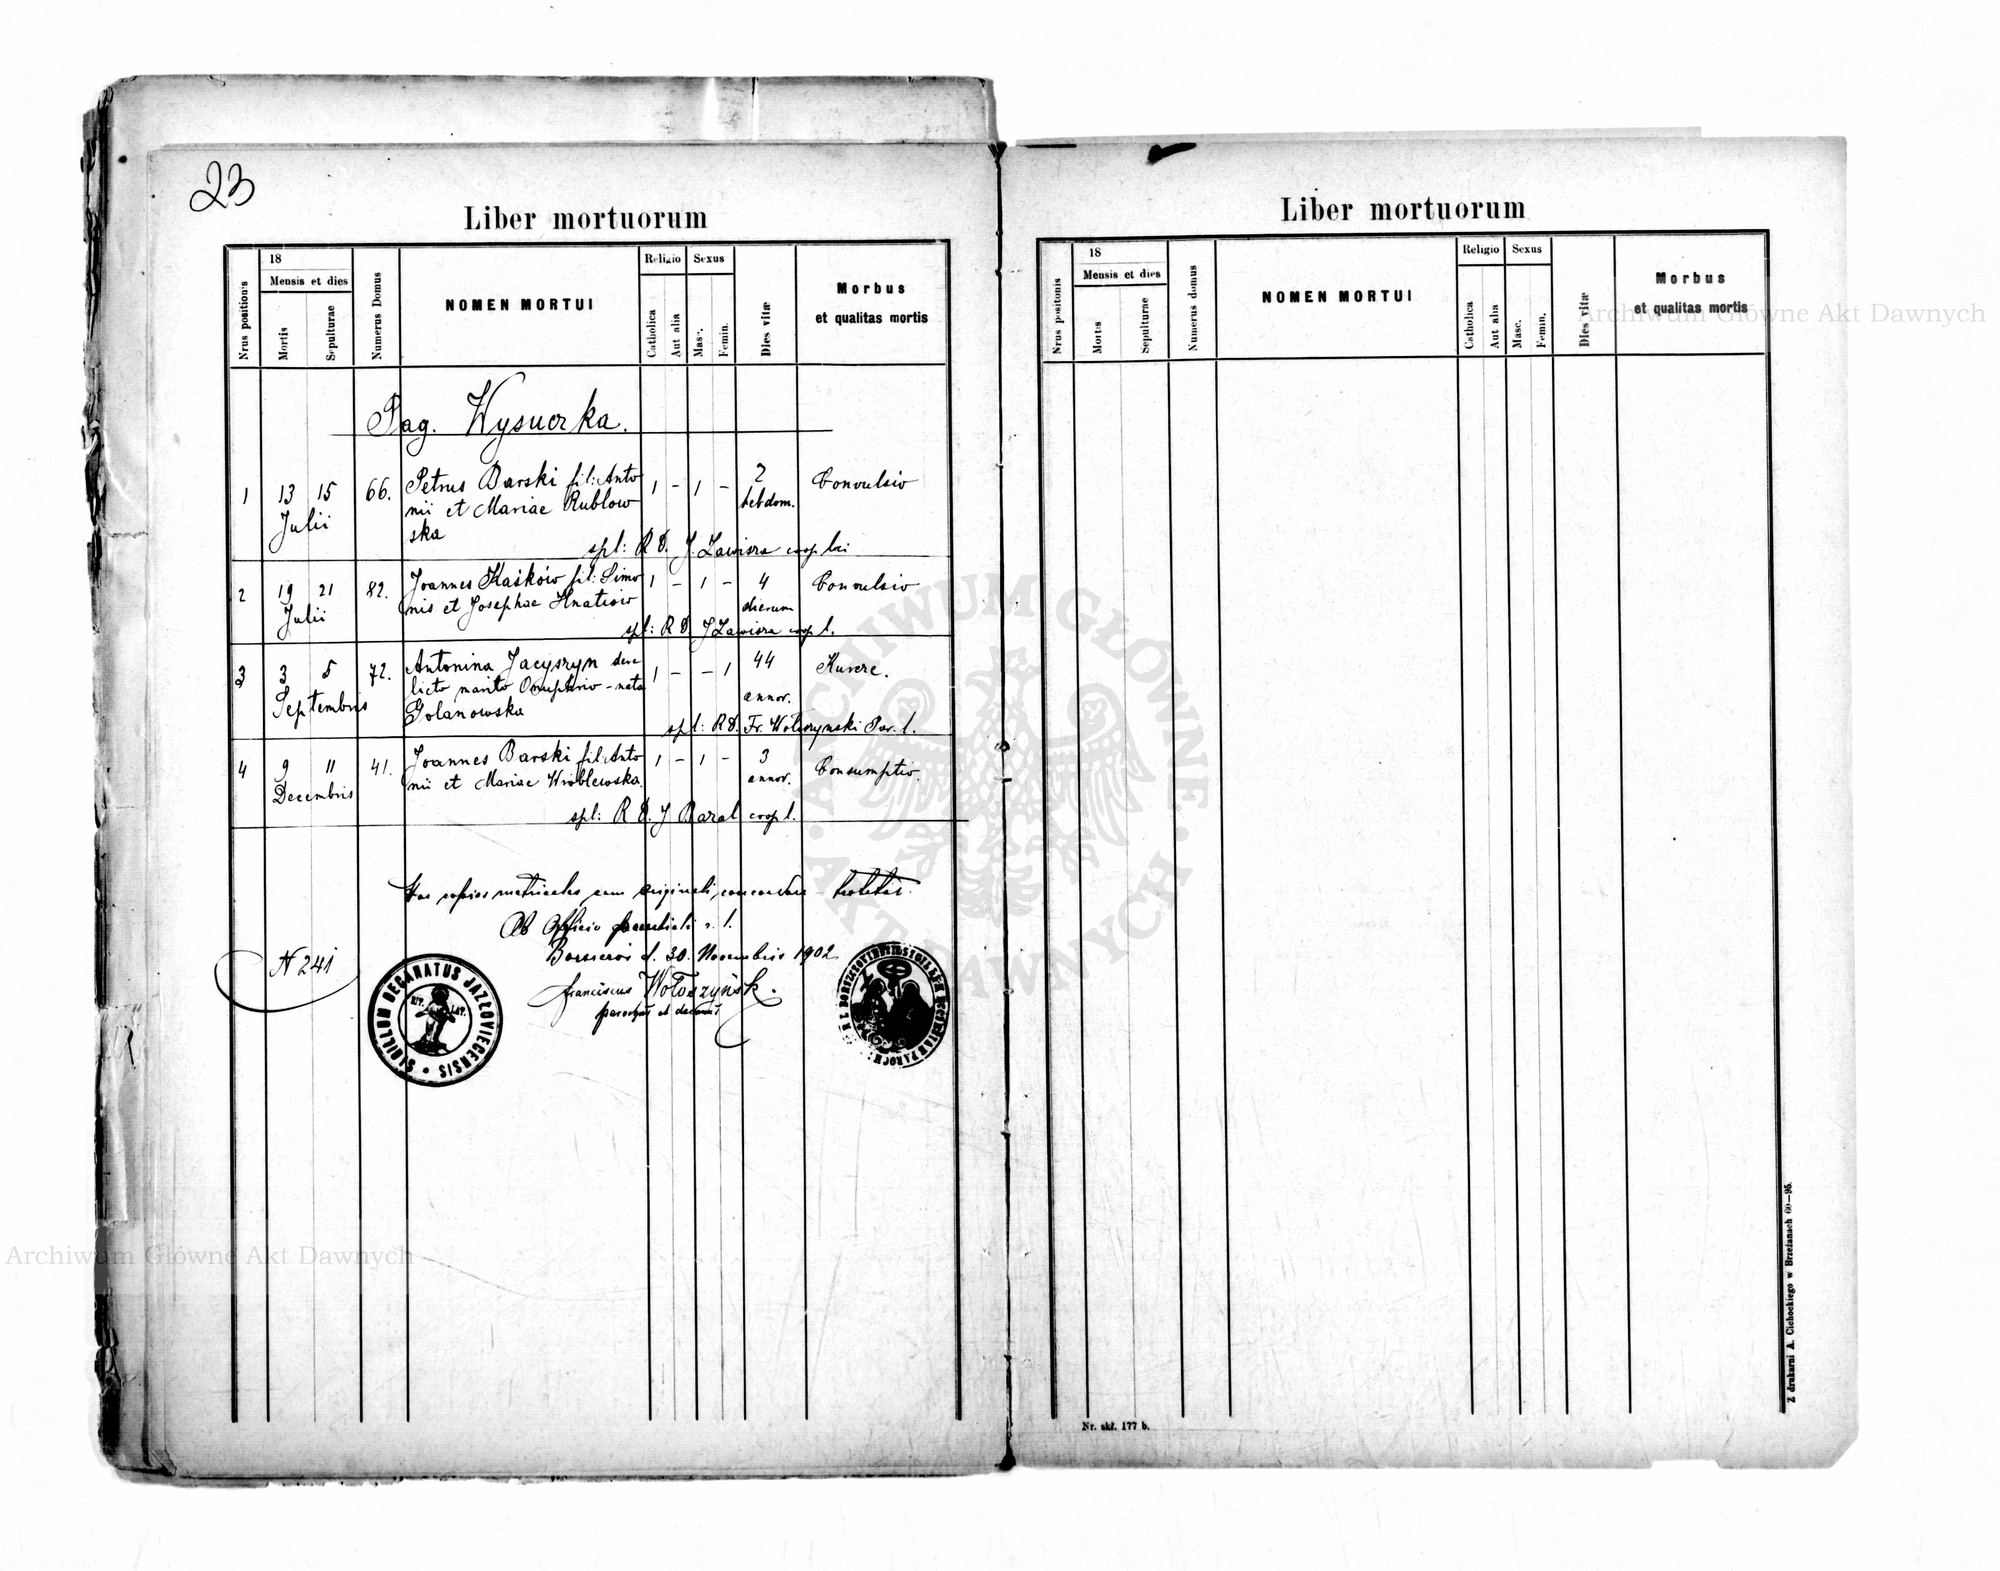 23
Liber mortuorum
Nrus positionis
18
Mensis et dies
Mortis
Sepulturae
Numerus Domus
NOMEN MORTUI
Religio
Catholica
Aut alia
Sexus
Masc.
Femin.
Dies vitæ
Morbus
et qualitas mortis
Pag. Wysuczka.
1 13 15 66. Petrus Barski fil: Anto 1 – 1 – 2 Convulsio
Julii nii et Mariae Rublow hebdom.
ska
spl: R D. J. Zawisza coop. loci
2 19 21 82. Joannes Kaśków fil: Simo 1 – 1 – 4 Convulsio
Julii nis et Josephae Hnatiow dierum
spl: R D J Zawisza coop l.
3 3 5 72. Antonina Jacyszyn dere 1 – – 1 44 Kurcze.
Septembris licto marito Onuphrio – nata annor.
Golanowska
spl: R D. Fr. Wołoszynski Par. l.
4 9 11 41. Joannes Barski fil: Anto 1 – 1 – 3 Consumptio.
Decembris nii et Mariae Wróblewska annor.
spl: R D. J Baral coop l.
Has copias metricales cum originali concordare testatur.
Ab Officio parochiali r. l.
N 241
d. 30. Novembris 1902
Franciscus Wołoszyński
parochus et decanus
SIGILLUM DECANATUS JAZŁOVIECENSIS
RIT. LAT.
Liber mortuorum
Nrus positonis
18
Mensis et dies
Mortis
Sepulturae
Numerus domus
NOMEN MORTUI
Religio
Catholica
Aut alia
Sexus
Masc.
Femin.
Dies vitæ
Morbus
et qualitas mortis
Nr. skł. 177 b.
Z drukarni A. Cichockiego w Brzeżanach 60—95.
Archiwum Główne Akt Dawnych
Archiwum Główne Akt Dawnych
ARCHIWUM GŁÓWNE AKT DAWNYCH